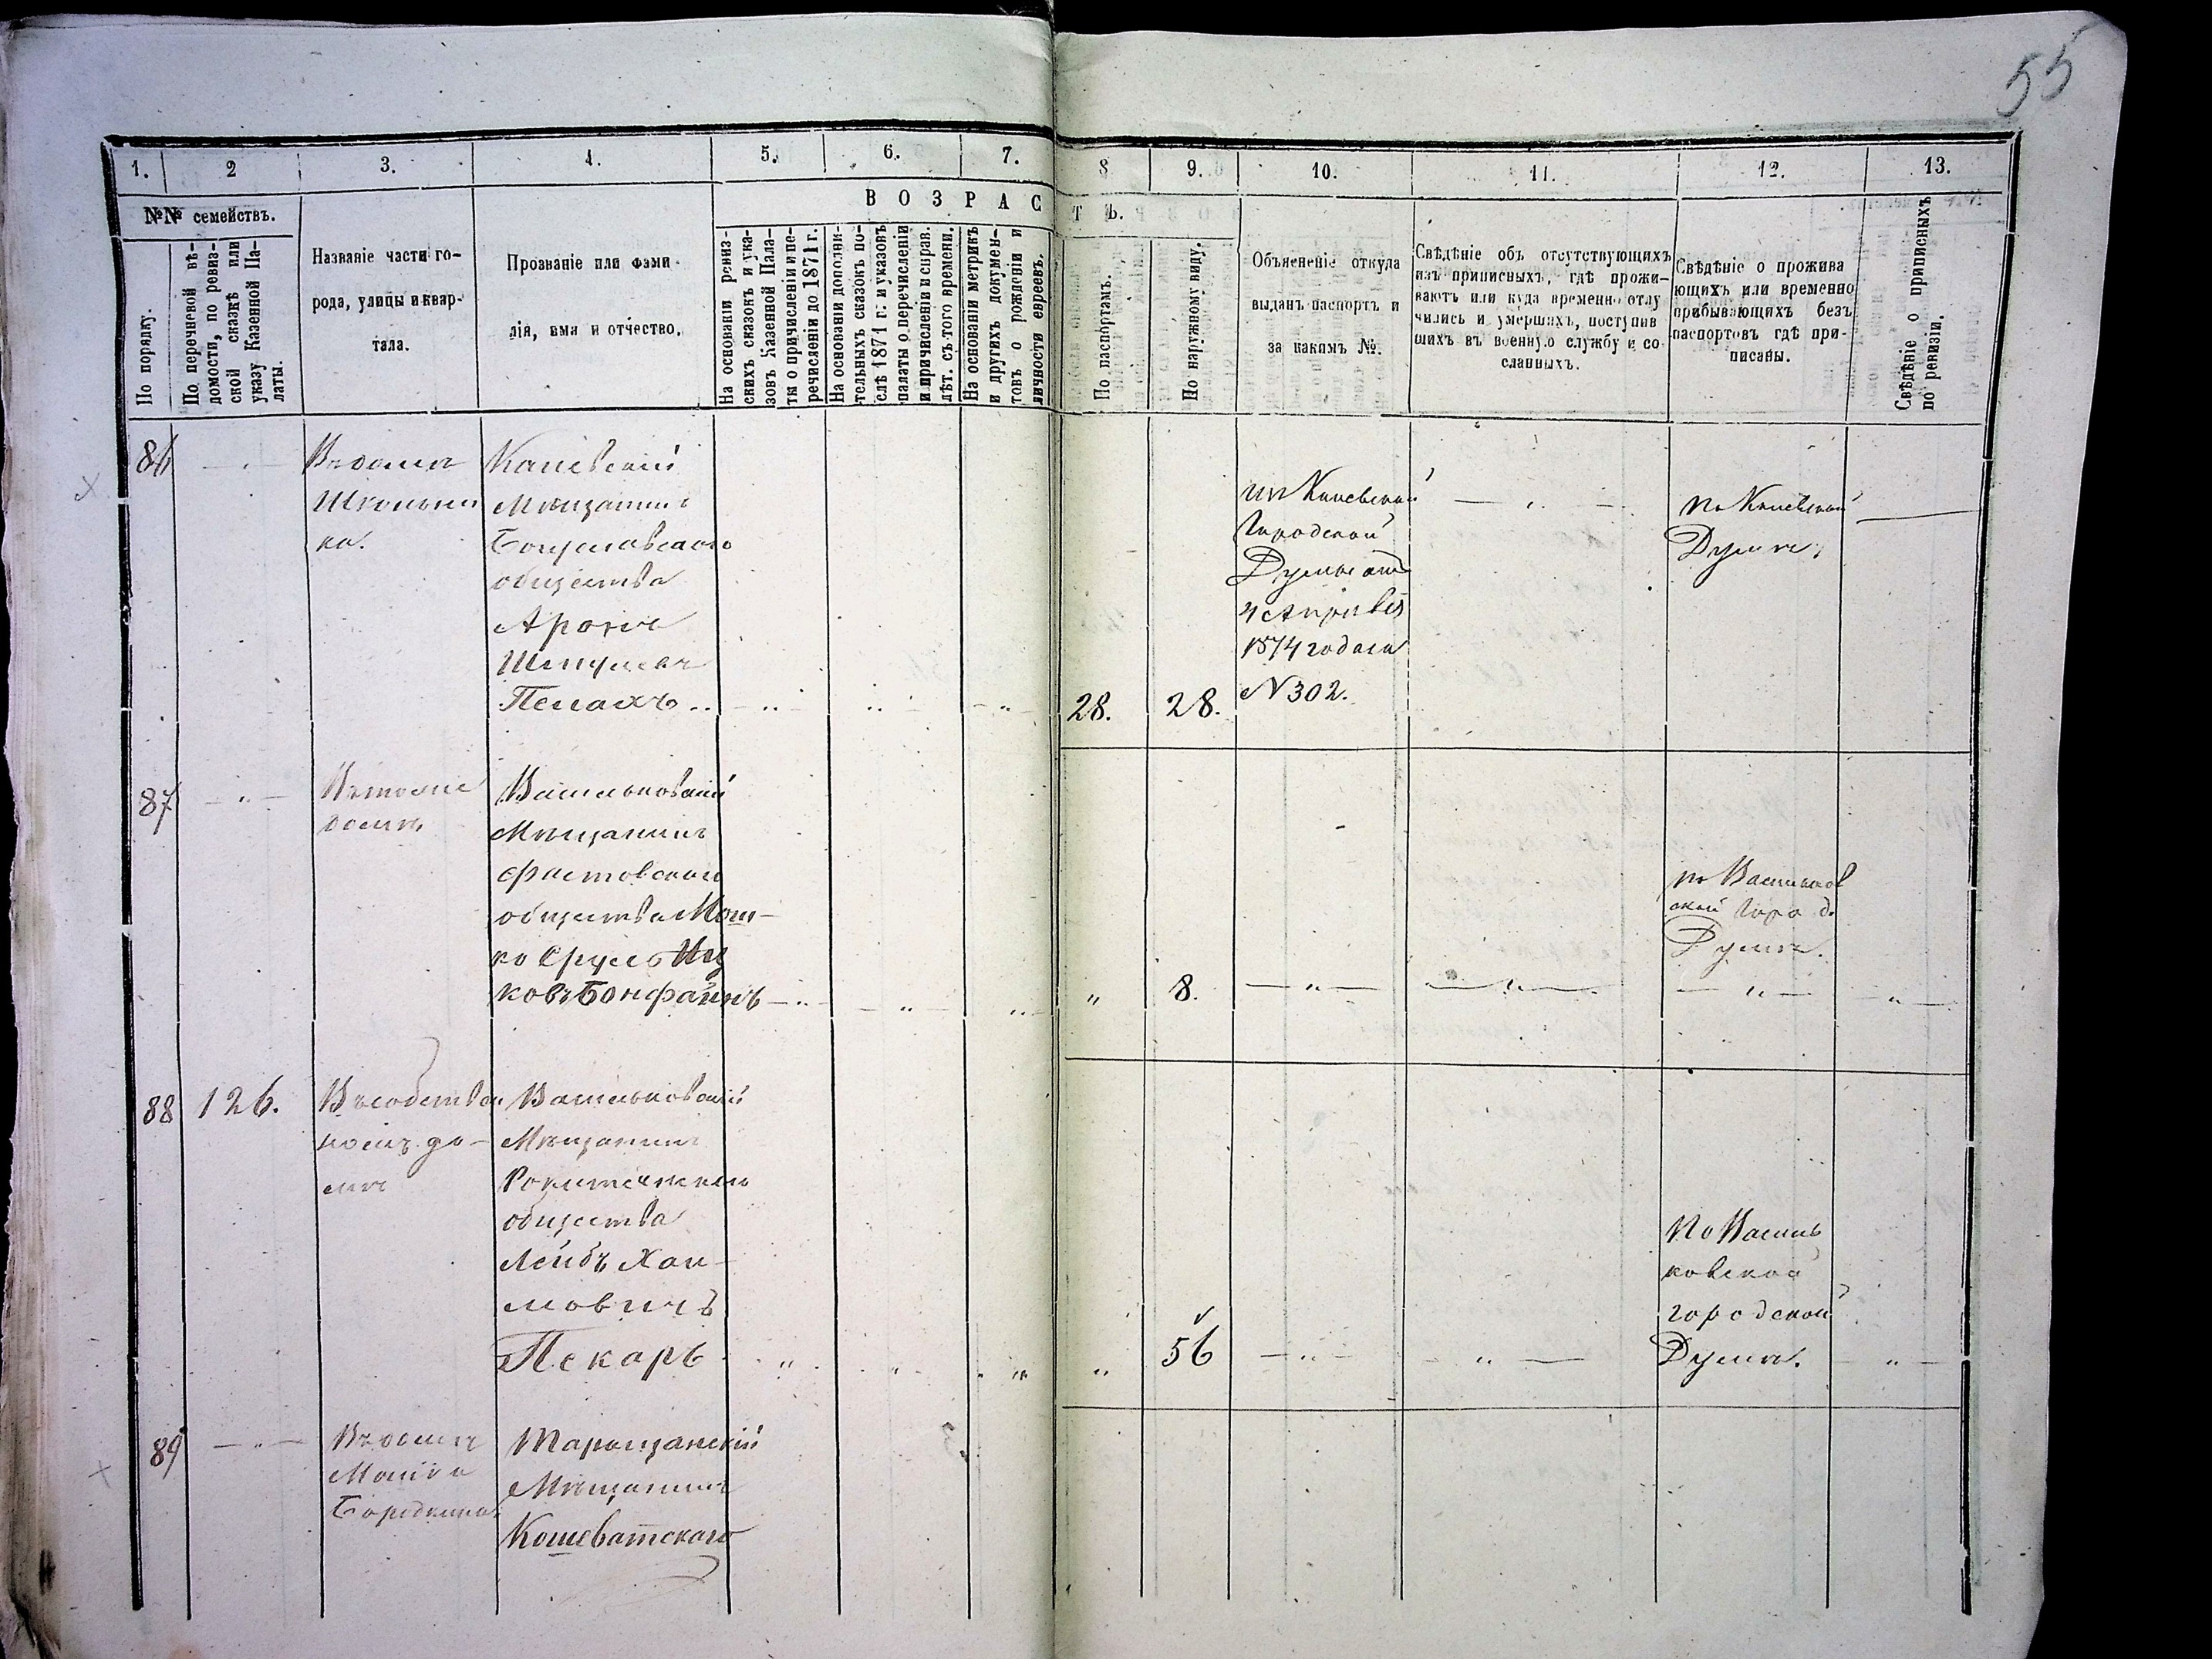 55
1. 2 3. 4. 5. 6. 7. 8 9. 10. 11. 12. 13.
№№ семействъ.
В О З Р А С Т Ъ.
По порядку.
По перечневой вѣ-
домости, по ревиз-
ской сказкѣ или
указу Казенной Па-
латы.
Названіе части го-
рода, улицы и квар-
тала.
Прозваніе или фами-
лія, имя и отчество.
На основаніи ревиз-
скихъ сказокъ и ука-
зовъ Казенной Пала-
ты о причисленіи и пе-
речисленіи до 1871 г.
На основаніи дополни-
тельныхъ сказокъ по-
слѣ 1871 г. и указовъ
палаты о перечисленіи
и причисленіи и справ.
лѣт. съ того времени.
На основаніи метрикъ
и другихъ докумен-
товъ о рожденіи и
личности евреевъ.
По паспортамъ.
По наружному виду.
Объясненіе откуда
выданъ паспортъ и
за какимъ №.
Свѣдѣніе объ отсутствующихъ
изъ приписныхъ, гдѣ прожи-
ваютъ или куда временно отлу
чились и умершихъ, поступив
шихъ въ военную службу и со-
сланныхъ.
Свѣдѣніе о прожива
ющихъ или временно
прибывающихъ безъ
паспортовъ гдѣ при-
писаны.
Свѣдѣніе о приписныхъ
по ревизіи.
86
Въ домѣ
Каневскій
Мѣщанинъ
Богуславскаго
общества
Аронъ
28. 28.
изъ Каневской
Городской
Думы отъ
4 Апрѣля
1874 года за
N 302.
по Каневской
Думѣ,
87
Въ томъ же
домѣ
Васильковскій
Мѣщанинъ
Фастовскаго
общества Мош-
ко Срулъ Иц
ковъ Бонфаинъ
" 8.
по Васильков
ской Город.
Думѣ.
88 126.
Въ собствен
номъ до-
мѣ
Васильковскій
Мѣщанинъ
общества
Лейбъ Хаи-
мовичъ
Пекарь
56
По Василь
ковской
городской
Думѣ.
89
Въ домѣ
Таращанскій
Мѣщанинъ
Кошеватского